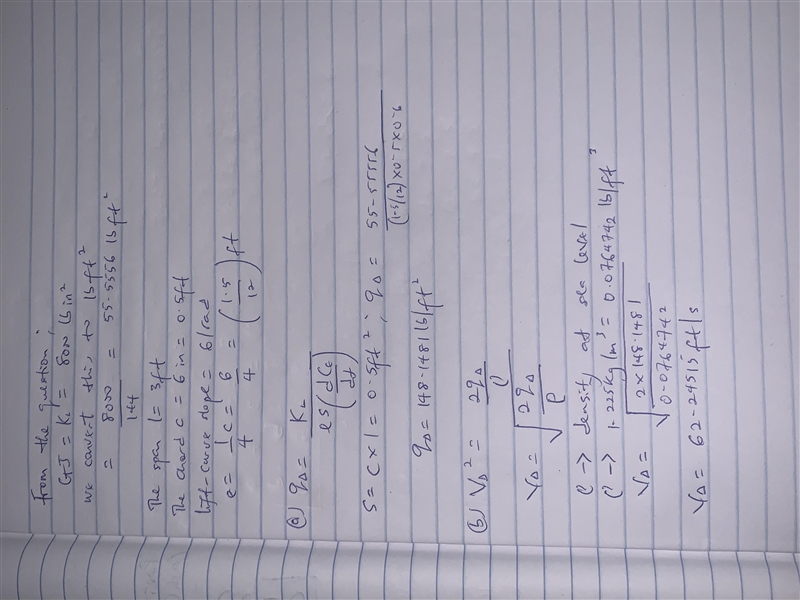 From the question,
GJ = K₂ = 8000 lb in²
we convert this to lb ft²
= 8000/144 = 55.5556 lb ft²
The span l = 3ft
The chord c = 6 in = 0.5ft
lift-curve slope = 6/rad
e = 1/4 c = 6/4 = (1.5/12) ft
(a) q_Δ = K₂ / (es(dC_e/dt))
S = C x l = 0.5ft²; q_Δ = 55.55556 / ((1.5/12) x 0.5 x 0.6)
q_Δ = 148.1481 lb/ft²
(b) V_Δ² = 2q_Δ/ρ
V_Δ = √(2q_Δ/ρ)
ρ → density at sea level
ρ → 1.225kg/m³ = 0.0764742 lb/ft³
V_Δ = √(2 x 148.1481 / 0.0764742)
V_Δ = 62.24515 ft/s